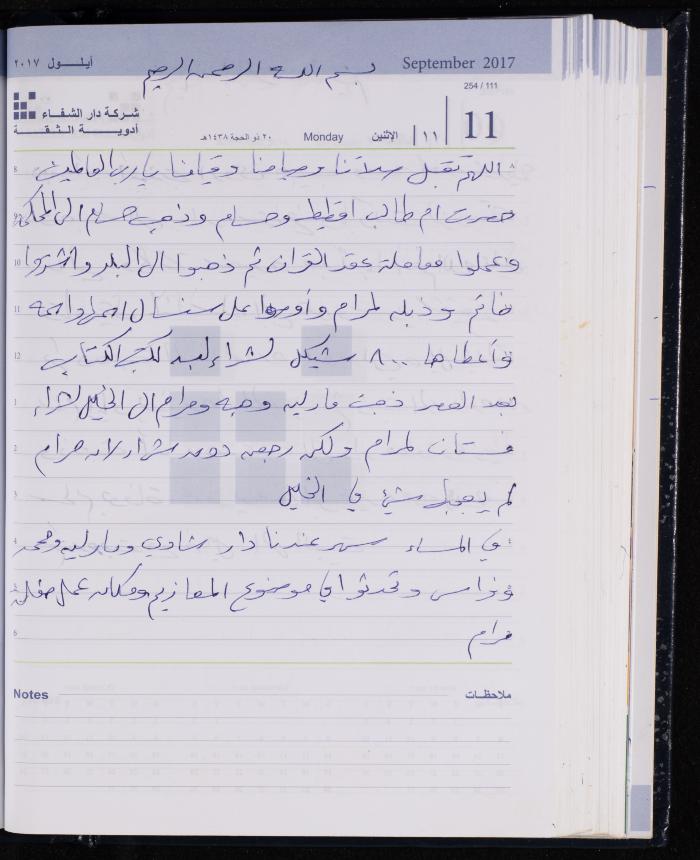 أيلـــول ٢٠١٧
September 2017
بسم الله الرحمن الرحيم
254 / 111
شركة دار الشفاء
أدويـــة الـثـقـة
٢٠ ذو الحجة ١٤٣٨هـ
Monday
الإثنين
١١
11
اللهم تقبل صلاتنا وصيامنا وقيامنا يا رب العالمين
حضرت ام طالب اقطيط وحسام وذهب حسام الى المحكمة
وعملوا معاملة عقد القران ثم ذهبوا الى البلد واشتروا
خاتم وذبله لمرام وأوصوا على سنسال
وأعطاها ٨٠٠ شيكل لشراء لبسه لكتب الكتاب
بعد العصر ذهبت مارليه وهبه ومرام الى الخليل لشراء
فستان لمرام ولكن رجعن دون شراء لان مرام
لم يعجبها شيء في الخليل
في المساء سهر عندنا دار شادي ومارليه ومحمد
وفراس وتحدثوا في موضوع المعازيم ومكان عمل حفلة
مرام
8
9
10
11
12
1
2
3
4
5
6
Notes
ملاحظـات